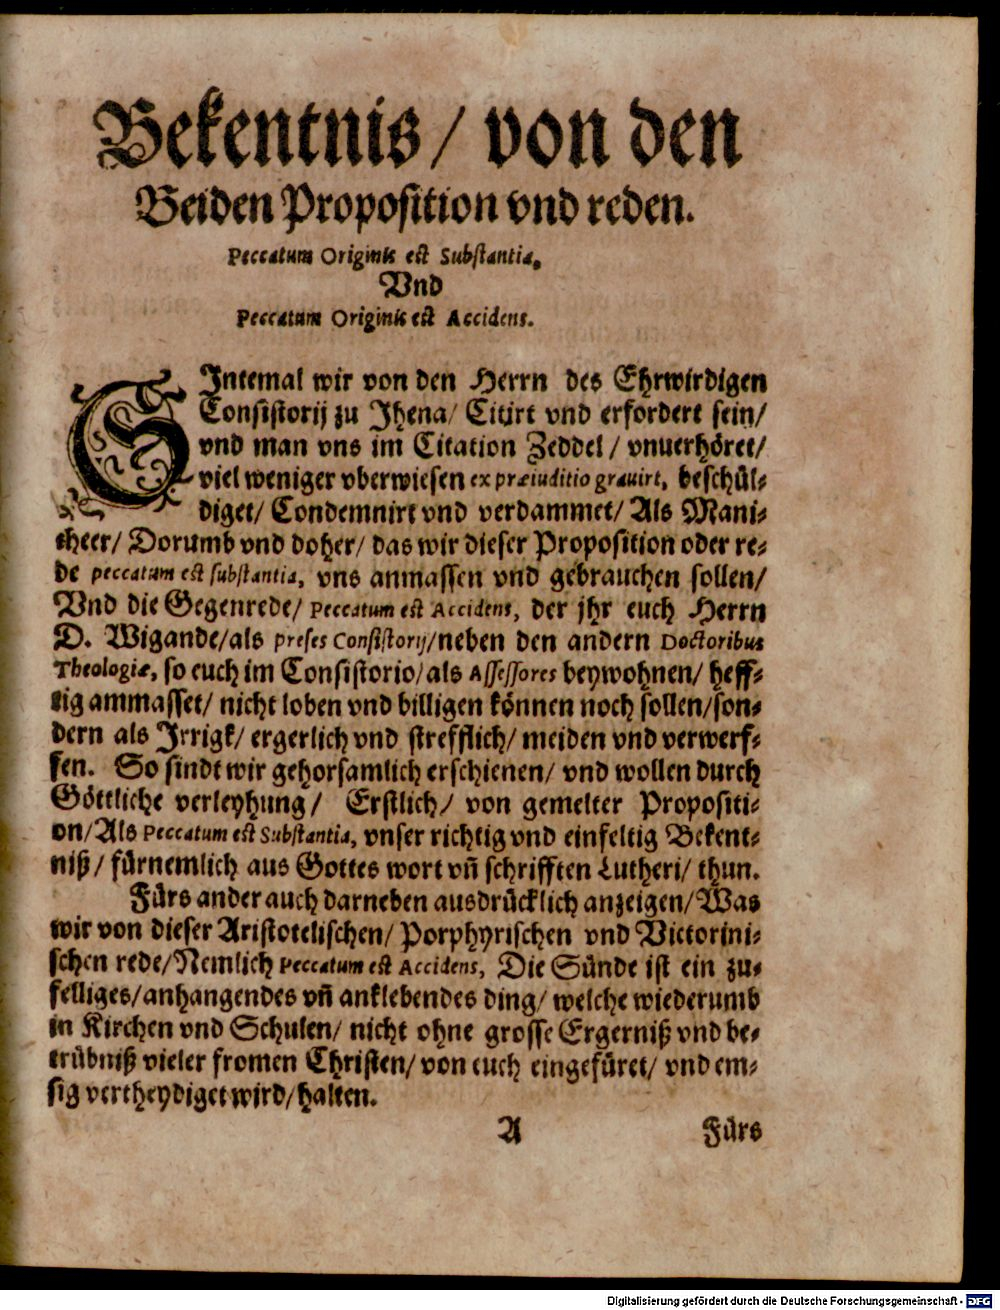 Bekentnis / von den
Beiden Proposition vnd reden.
Peccatum Originis est Substantia,
Vnd
Peccatum Originis est Accidens.
SIntemal wir von den Herrn des Ehrwirdigen
Consistorij zu Jhena / Citirt vnd erfordert sein /
vnd man vns im Citation Zeddel / vnuerhöret /
viel weniger vberwiesen ex præiuditio grauirt, beschül⸗
diget / Condemnirt vnd verdammet / Als Mani⸗
cheer / Dorumb vnd doher / das wir dieser Proposition oder re⸗
de peccatum est substantia, vns anmassen vnd gebrauchen sollen /
Vnd die Gegenrede / Peccatum est Accidens, der jhr euch Herrn
D. Wigande / als preses Consistorij / neben den andern Doctoribus
Theologiæ, so euch im Consistorio / als Assessores beywohnen / heff⸗
tig ammasset / nicht loben vnd billigen können noch sollen / son⸗
dern als Jrrigk / ergerlich vnd strefflich / meiden vnd verwerf⸗
fen. So sindt wir gehorsamlich erschienen / vnd wollen durch
Göttliche verleyhung / Erstlich / von gemelter Propositi⸗
on / Als Peccatum est Substantia, vnser richtig vnd einfeltig Bekent⸗
niß / fürnemlich aus Gottes wort vñ schrifften Lutheri / thun.
Fürs ander auch darneben ausdrücklich anzeigen / Was
wir von dieser Aristotelischen / Porphyrischen vnd Victorini⸗
schen rede / Nemlich Peccatum est Accidens, Die Sünde ist ein zu⸗
felliges / anhangendes vñ anklebendes ding / welche wiederumb
in Kirchen vnd Schulen / nicht ohne grosse Ergerniß vnd be⸗
trübniß vieler fromen Christen / von euch eingefüret / vnd em⸗
sig vertheydiget wird / halten.
A Fürs
Digitalisierung gefördert durch die Deutsche Forschungsgemeinschaft - DFG